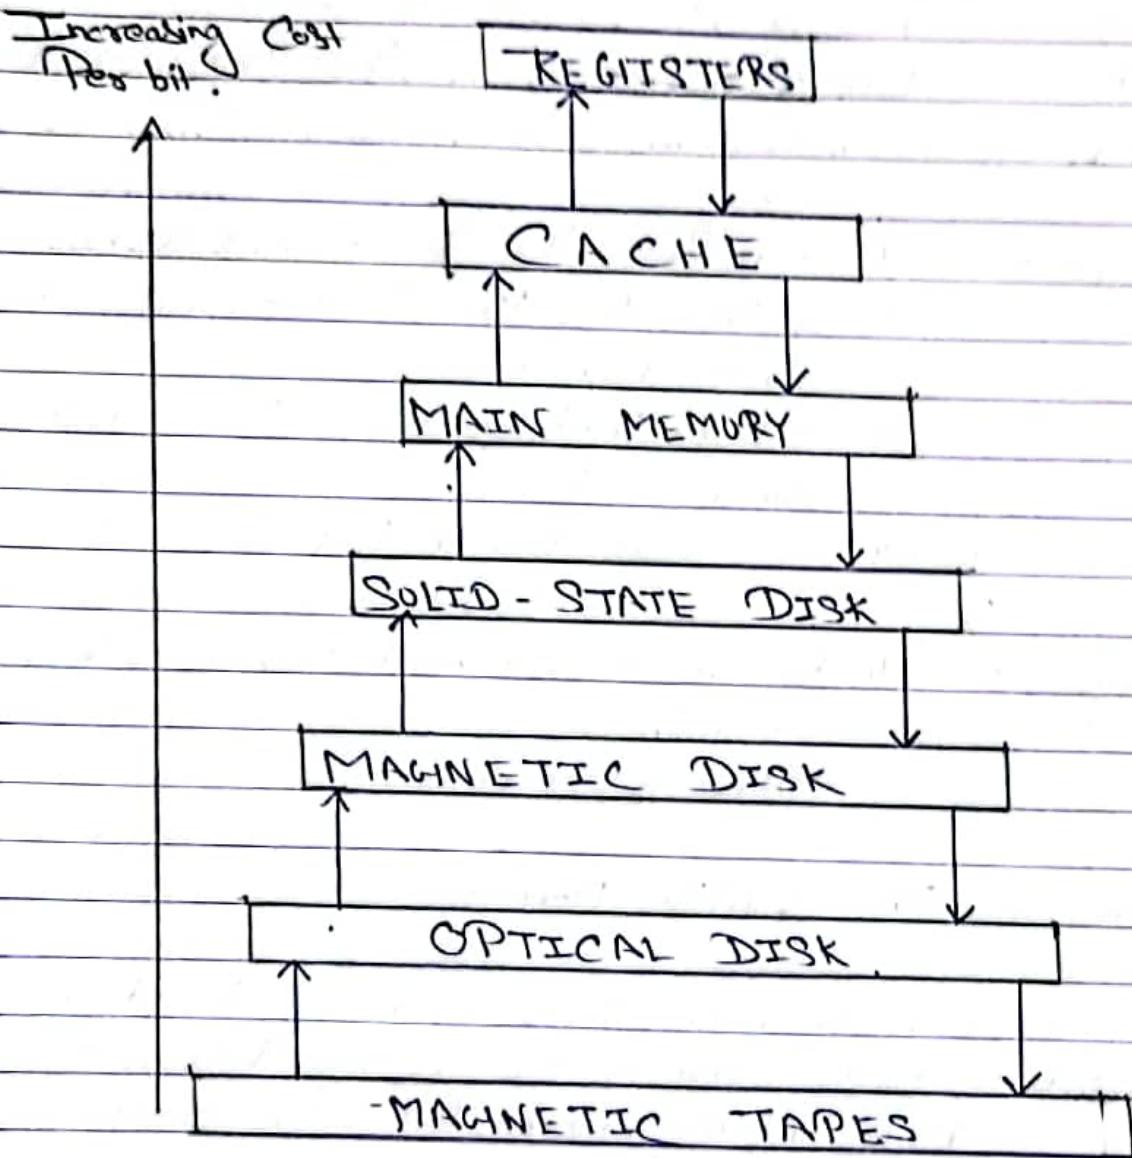 Increasing Cost
Per bit.
REGITSTERS
CACHE
MAIN MEMORY
SOLID - STATE DISK
MAGNETIC DISK
OPTICAL DISK
MAGNETIC TAPES